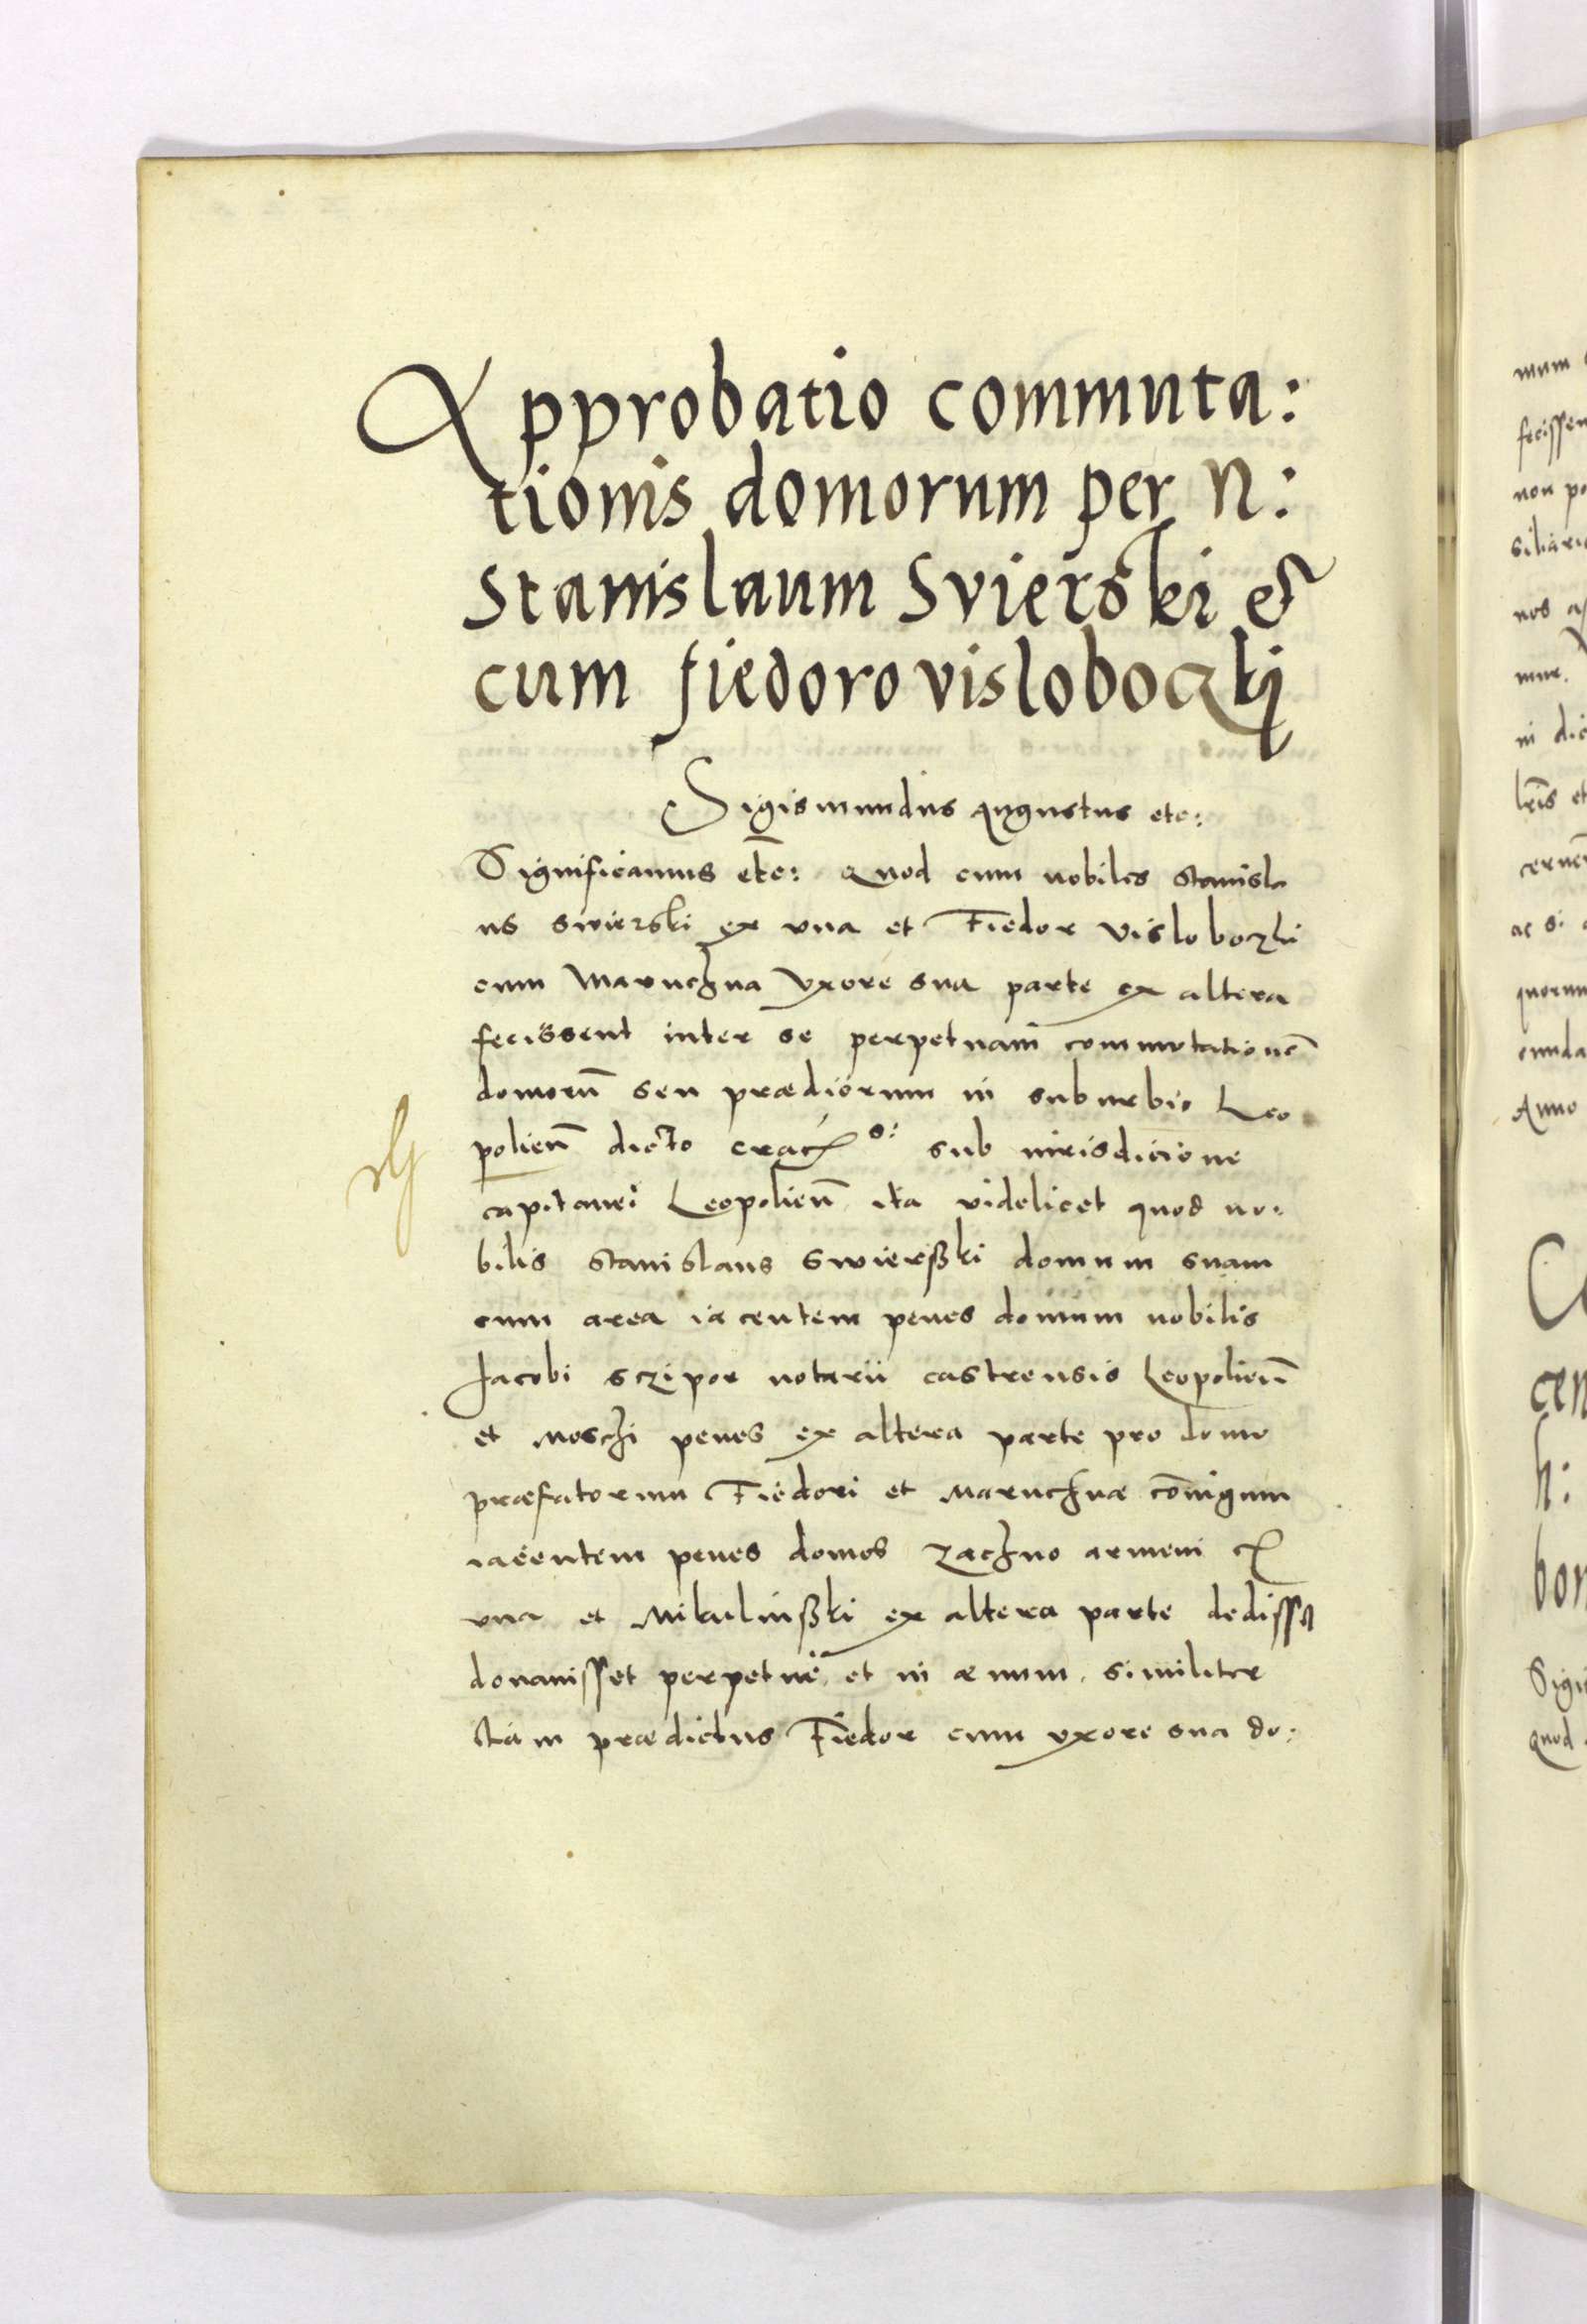 Approbatio commuta:
tionis domorum per N:
Stanislaum Svierski et
cum fiedoro visloboczkij
Sigismundus Augustus etc:
Significamus etc: Quod cum nobiles Stanisla
us Swierski ex una et Fiedor Visloboczki
cum Maruchna Uxore sua parte ex altera
fecissent inter se perpetuam commutationē
domorū seu prædiorum in suburbio Leo
polieñ dicto sub iurisdicione
capitanei Leopolieñ ita videlicet quod no:
bilis Stanislaus Swierßki domum suam
cum area iacentem penes domum nobilis
Jacobi Sczipor notarii castrensis Leopolieñ
et Moschi penes ex altera parte pro domo
præfatorum Fiedori et Maruchnæ cōiugum
iacentem penes domos Zachno armeni ex
una et Mikulinßki ex altera parte
donauisset perpetue et in æuum. similiter
etiam prædictus Fiedor cum uxore sua do:
mum
fecissen
non po
siliari
nos
mur.
in dic
lr̄is et
ac si
quorum
Anno
cen
h:
bon
Sigi
quod